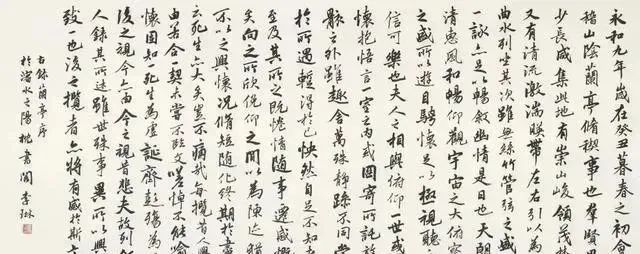 永和九年歲在癸丑暮春之初會
稽山陰蘭亭脩稧事也群賢
少長咸集此地有崇山峻領茂林
又有清流激湍暎帶左右引以為
曲水列坐其次雖無絲竹管弦之盛
一詠亦足以暢敘幽情是日也天朗
清惠風和暢仰觀宇宙之大俯察
之盛所以遊目騁懷足以極視聽
信可樂也夫人之相與俯仰一世或
懷抱悟言一室之內或因寄所託放
骸之外雖趣舍萬殊靜躁不同當
於所遇蹔得於己快然自足不知老
至及其所之既惓情隨事遷感慨
矣向之所欣俛仰之間以為陳迹猶
不以之興懷況脩短隨化終期於盡
云死生亦大矣豈不痛哉每攬昔人興
由若合一契未嘗不臨文嗟悼不能喻
懷固知死生為虛誕齊彭殤為
後之視今亦由今之視昔悲夫故列
人錄其所述雖世殊事異所以興
致一也後之攬者亦將有感於斯文
右錄蘭亭序
於水之陽枕書閣李琳